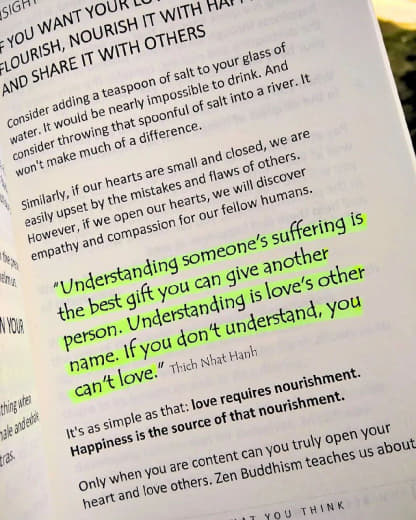 F YOU WANT YOUR
FLOURISH, NOURISH IT WITH
AND SHARE IT WITH OTHERS
Consider adding a teaspoon of salt to your glass of
water. It would be nearly impossible to drink. And
consider throwing that spoonful of salt into a river. It
won't make much of a difference.
Similarly, if our hearts are small and closed, we are
easily upset by the mistakes and flaws of others.
However, if we open our hearts, we will discover
empathy and compassion for our fellow humans.
"Understanding someone's suffering is
the best gift you can give another
person. Understanding is love's other
name. If you don't understand, you
can't love." Thich Nhat Hanh
It's as simple as that: love requires nourishment.
Happiness is the source of that nourishment.
Only when you are content can you truly open your
heart and love others. Zen Buddhism teaches us about
YOU THINK
N YOUR
thing when
tras.